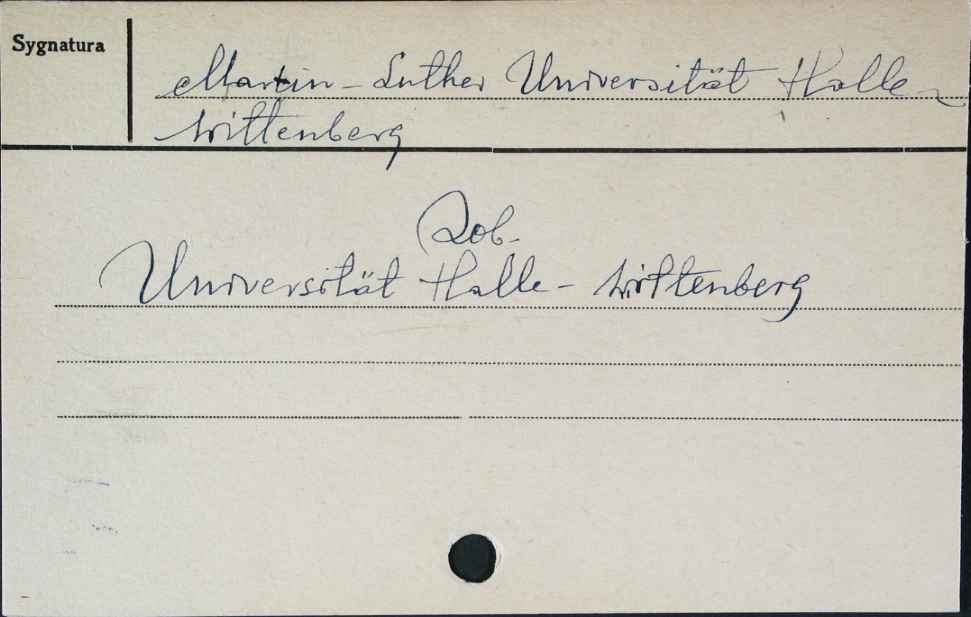 Sygnatura
Martin-Luther Universität Halle-
Wittenberg
Zob.
Universität Halle-Wittenberg